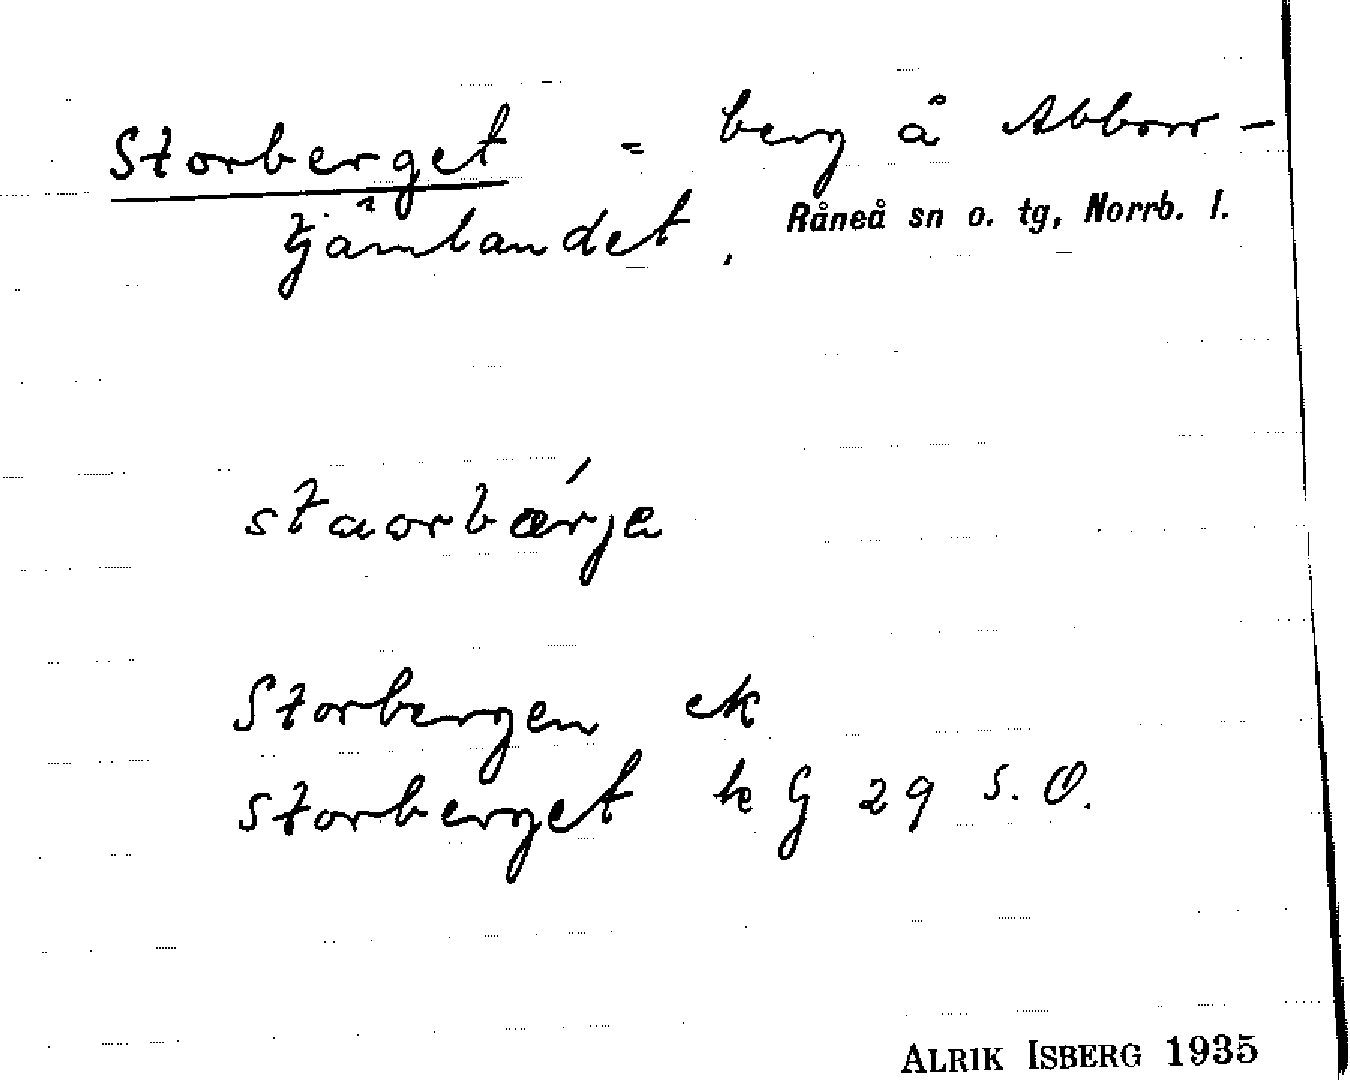 Storberget = berg å Abborr-
tjärnlandet.
Råneå sn o. tg, Norrb. l.
staorbærje
Storbergen ek
Storberget kG 29 S.O.
ALRIK ISBERG 1935